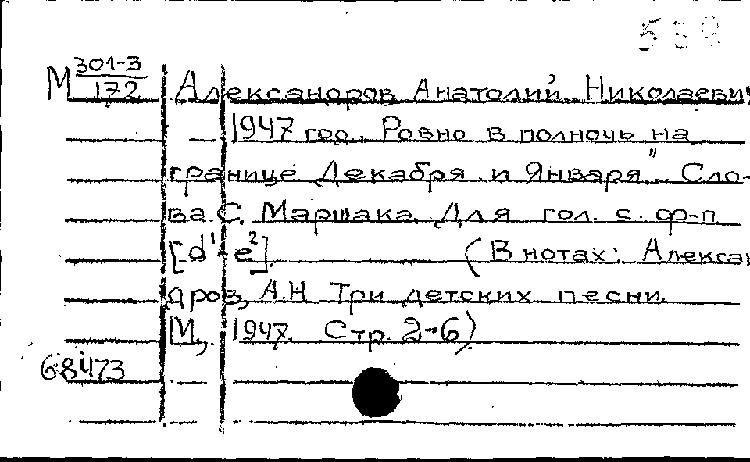 М 301-3/172 Александров Анатолий Николаевич
1947 год. Ровно в полночь на
границе Декабря и Января". Сло-
ва С. Маршака. Для гол. с ф-п
[d¹-e²]. (В нотах: Алексан
дров, А.Н. Три детских песни.
М., 1947. Стр. 2-6)
68473